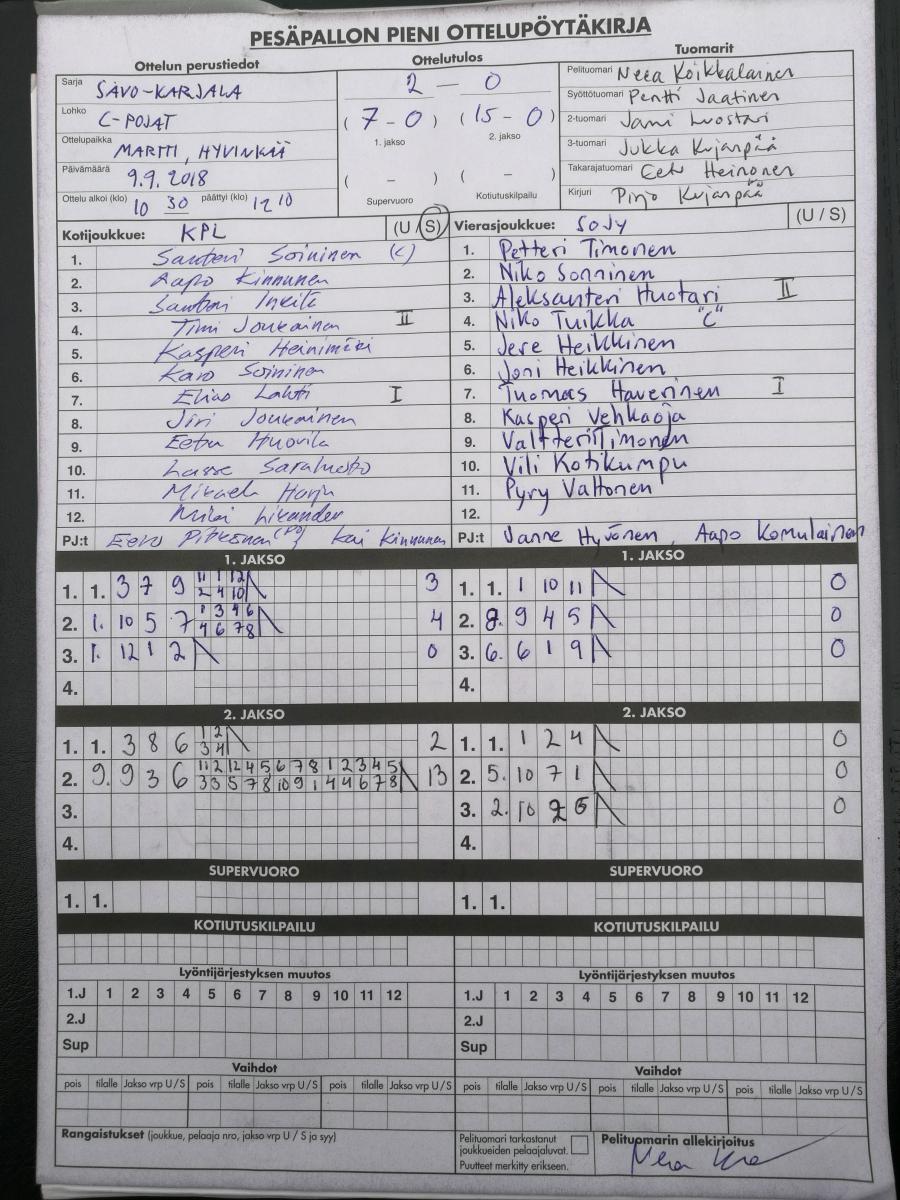 PESÄPALLON PIENI OTTELUPÖYTÄKIRJA
Ottelun perustiedot
Ottelutulos
Tuomarit
Sarja SAVO-KARJALA
Lohko C-POJAT
Ottelupaikka MARTTI, HYVINKÄÄ
Päivämäärä 9.9.2018
Ottelu alkoi (klo) 10 30 päättyi (klo) 12 10
2 — 0
( 7 - 0 ) ( 15 - 0 )
1. jakso 2. jakso
( - ) ( - )
Supervuoro Kotiutuskilpailu
Pelituomari Neea Koikkalainen
Syöttötuomari Pentti Jaatinen
2-tuomari Jami Luostari
3-tuomari Jukka Kujanpää
Takarajatuomari Eetu Heinonen
Kirjuri Pirjo Kujanpää
Kotijoukkue: KPL (U / S)
1. Santeri Soininen (C)
2. Aapo Kinnunen
3. Santeri
4. Timi Joukainen II
5. Kasperi Heinimäki
6. Karo Soininen
7. Elias Lahti I
8. Jiri Joukainen
9. Eetu Huovila
10. Lasse
11. Mikaela Harju
12. Likander
PJ:t Eero Pitkänen (PJ) Kai Kinnunen
Vierasjoukkue: SoJy (U / S)
1. Petteri Timonen
2. Niko Sonninen
3. Aleksanteri Huotari II
4. Niko Tuikka "C"
5. Jere Heikkinen
6. Joni Heikkinen
7. Tuomas Haverinen I
8. Kasperi Vehkaoja
9. Valtteri Timonen
10. Vili Kotikumpu
11. Pyry Valtonen
12.
PJ:t Janne Hyvönen, Aapo Komulainen
1. JAKSO
1. 1. 3 7 9 11 1 12 3
2 4 10
2. 1. 10 5 7 1 3 4 6 4
4 6 7 8
3. 1. 12 1 2 0
4.
1. JAKSO
1. 1. 1 10 11 0
2. 8. 9 4 5 0
3. 6. 6 1 9 0
4.
2. JAKSO
1. 1. 3 8 6 1 2 2
3 4
2. 9. 9 3 6 11 12 12 4 5 6 7 8 1 2 3 4 5 13
3 3 5 7 8 10 9 1 4 4 6 7 8
3.
4.
2. JAKSO
1. 1. 1 2 4 0
2. 5. 10 7 1 0
3. 2. 10 2 5 0
4.
SUPERVUORO
1. 1.
SUPERVUORO
1. 1.
KOTIUTUSKILPAILU
KOTIUTUSKILPAILU
Lyöntijärjestyksen muutos
1.J 1 2 3 4 5 6 7 8 9 10 11 12
2.J
Sup
Lyöntijärjestyksen muutos
1.J 1 2 3 4 5 6 7 8 9 10 11 12
2.J
Sup
Vaihdot
pois tilalle Jakso vrp U / S pois tilalle Jakso vrp U / S pois tilalle Jakso vrp U / S
Vaihdot
pois tilalle Jakso vrp U / S pois tilalle Jakso vrp U / S pois tilalle Jakso vrp U / S
Rangaistukset (joukkue, pelaaja nro, jakso vrp U / S ja syy)
Pelituomari tarkastanut
joukkueiden pelaajaluvat.
Puutteet merkitty erikseen.
Pelituomarin allekirjoitus